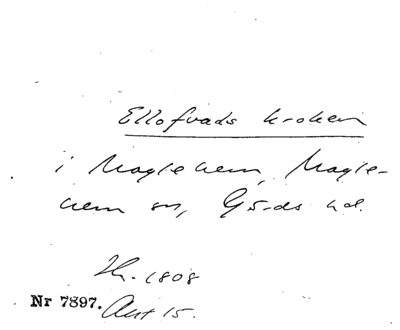 Ellofvads kroken
i Maglehem, Magle-
hem sn, Gärds hd.
Jk. 1808
Nr 7897. Akt 15.